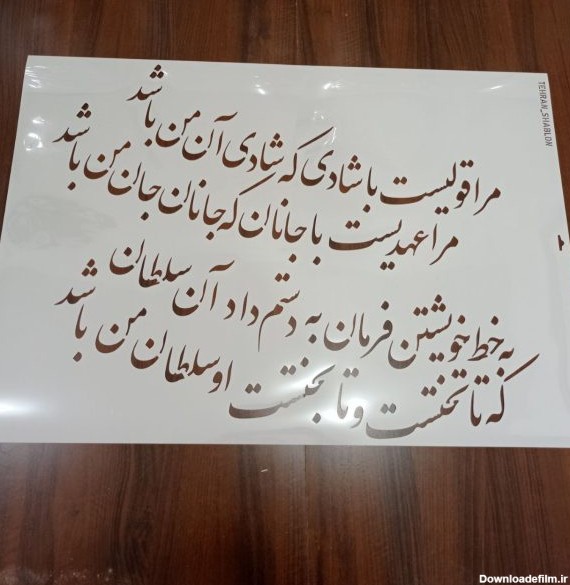 مرا قولیست با شادی که شادی آن من باشد
مرا عهدیست با جانان که جانان جان من باشد
به خط خویشتن فرمان به دستم داد آن سلطان
که تا تختست و تا بختست او سلطان من باشد
TEHRAN_SHABLON
Downloadefilm.ir